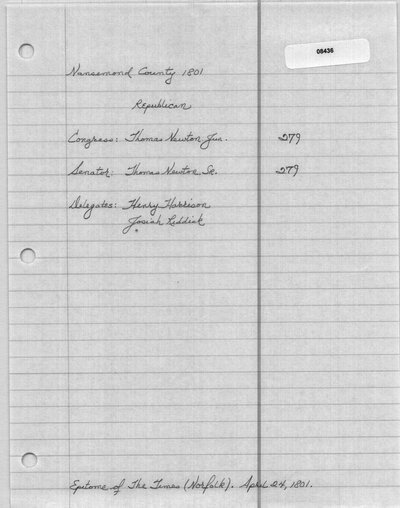 08436
Nansemond County 1801
Republican
Congress: Thomas Newton Jun. 279
Senator: Thomas Newton Sr. 279
Delegates: Henry Harrison
Josiah Riddick
Epitome of The Times (Norfolk). April 24, 1801.